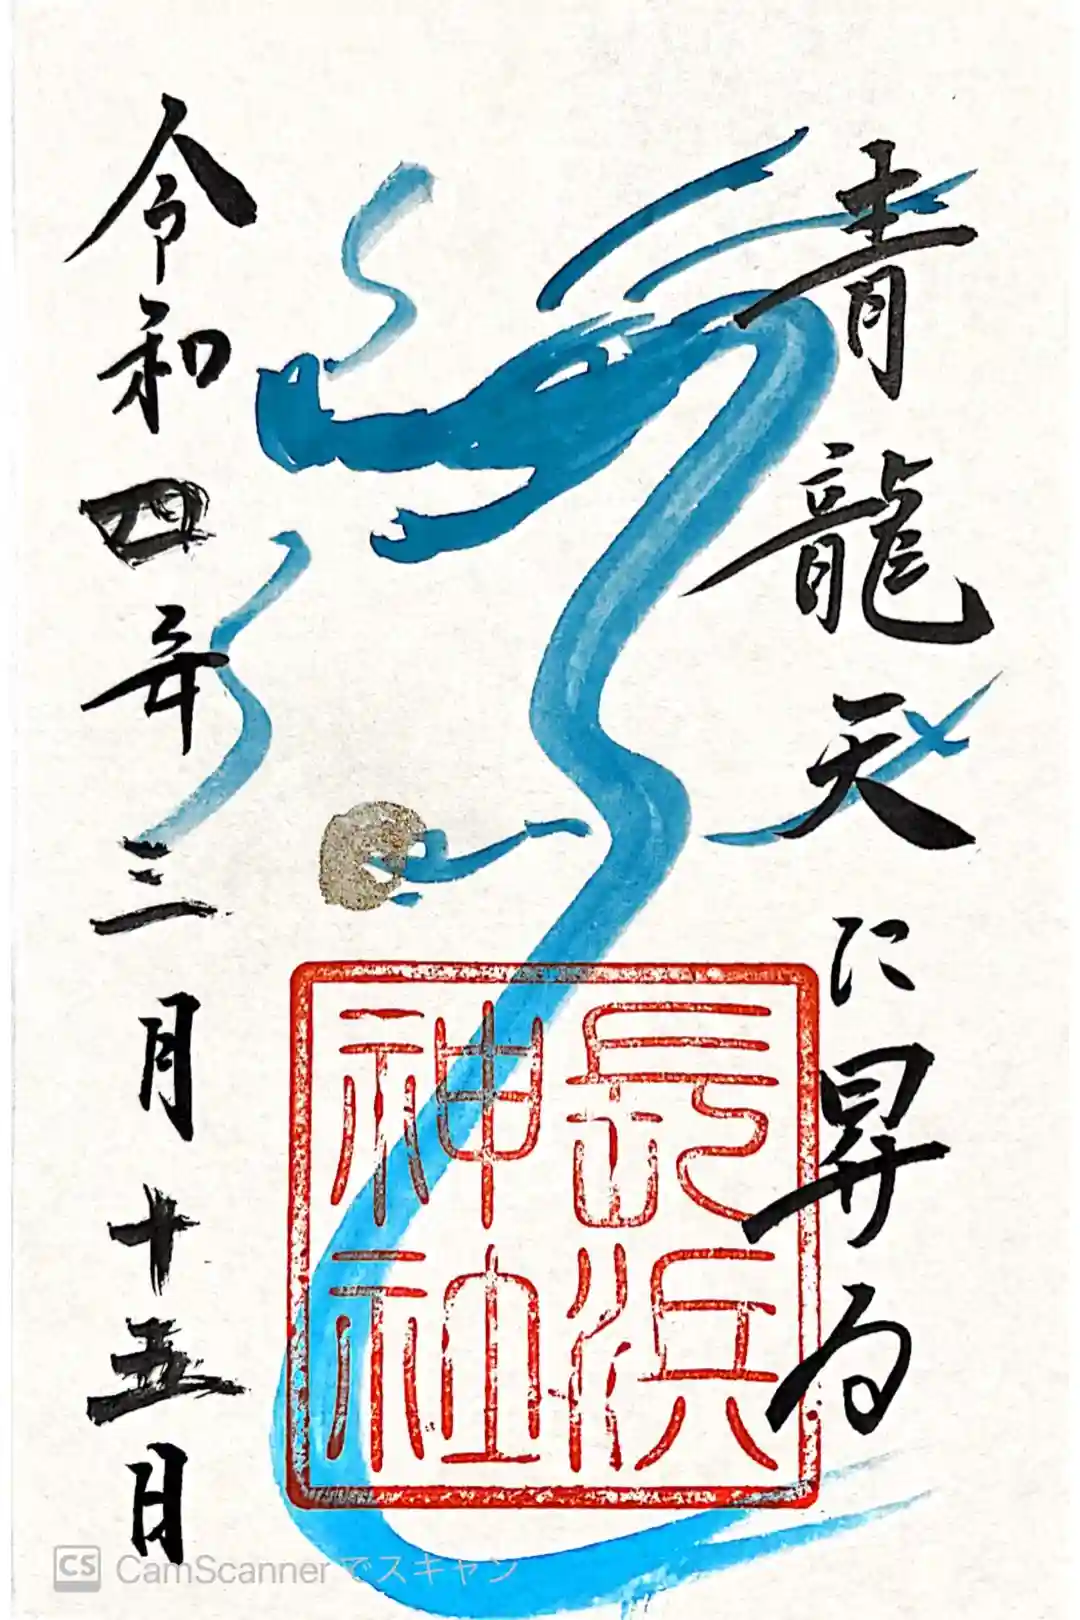 青龍天に昇る
長浜
神社
令和四年三月十五日
CS CamScannerでスキャン